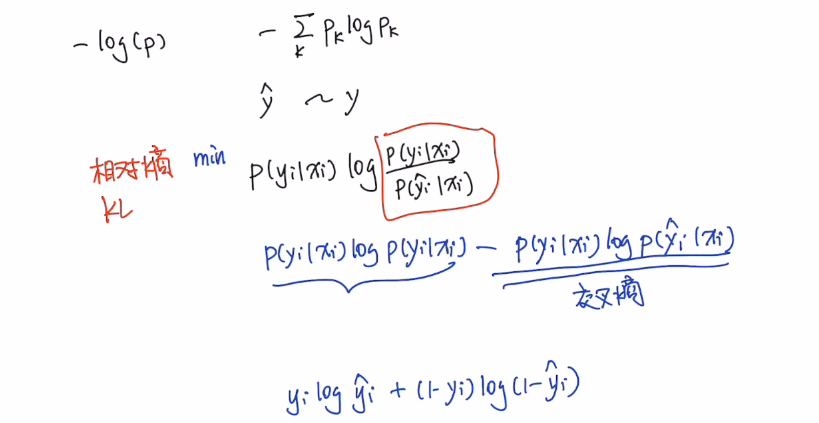 - log(p)    - Σ_k P_k log P_k
ŷ ~ y
相对熵 min P(yi|xi) log P(yi|xi) / P(ŷi|xi)
KL
P(yi|xi) log P(yi|xi) - P(yi|xi) log P(ŷi|xi)
交叉熵
yi log ŷi + (1-yi) log(1-ŷi)